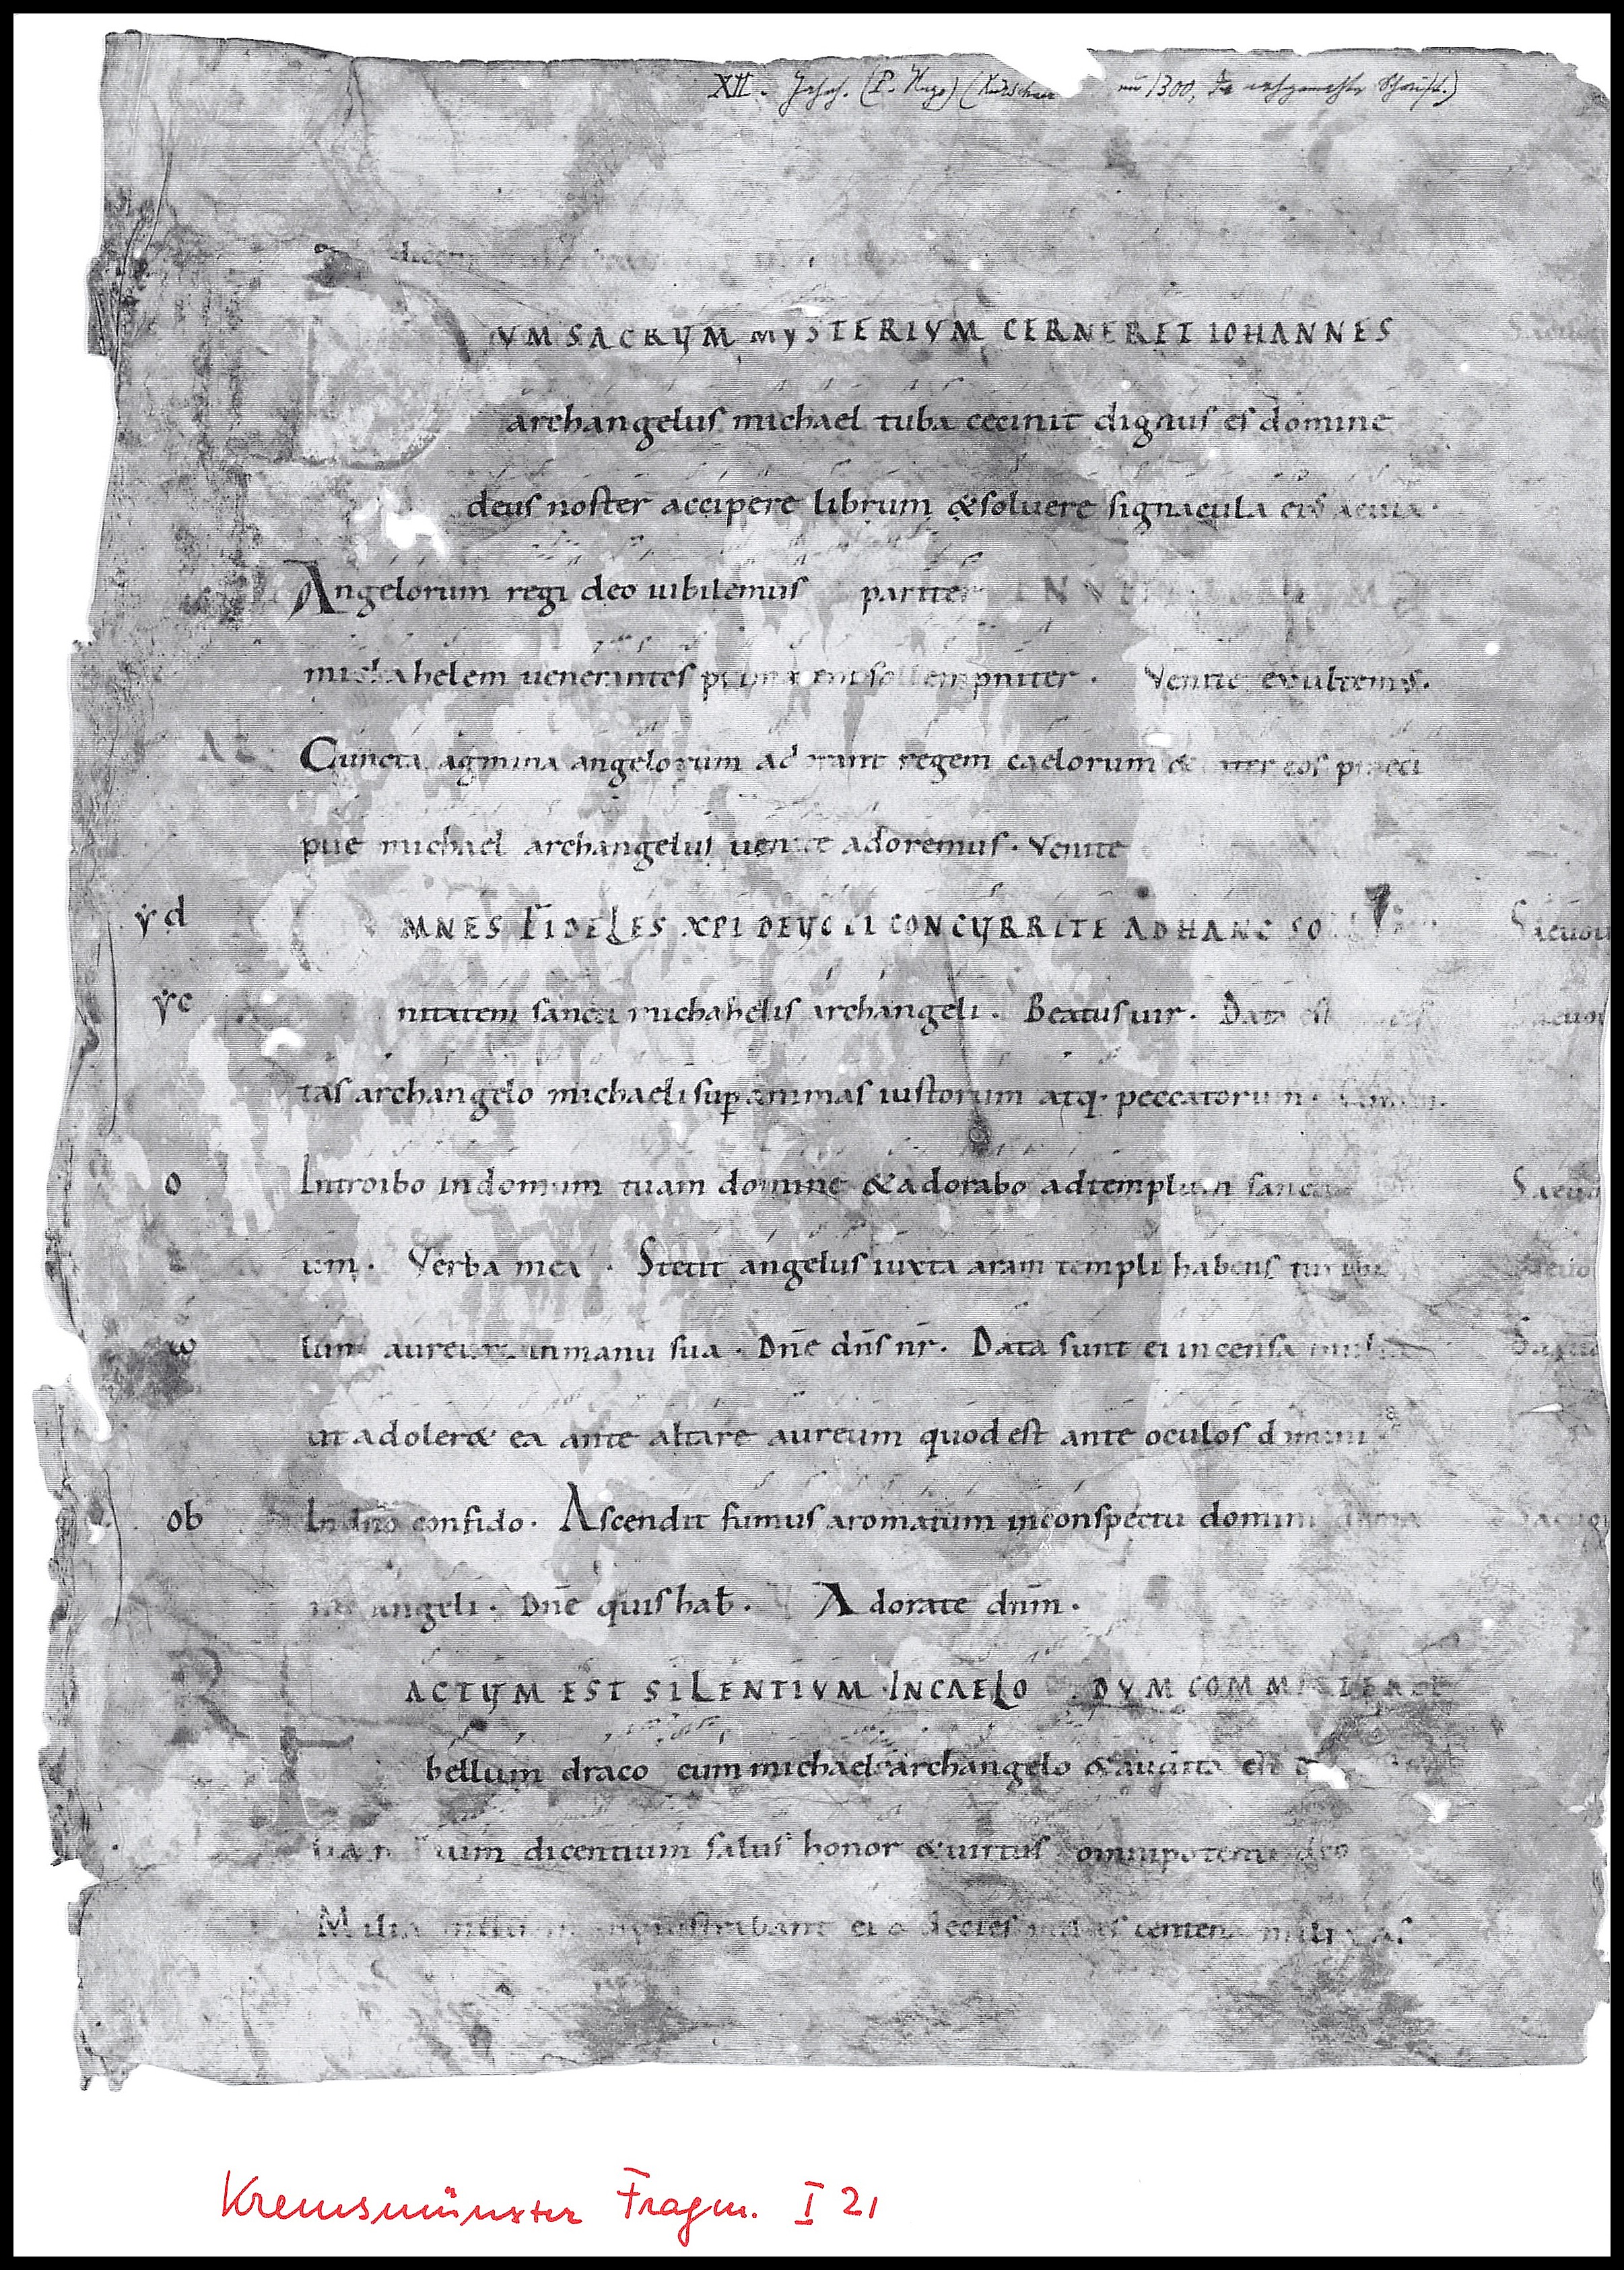 XII. Jahrh. (P. Hugo) (
um 1300, in nachgemachter Schrift.)
VM SACRVM MYSTERIVM CERNERET IOHANNES
archangelus michael tuba cecinit dignus es domine
deus noster accipere librum &soluere signacula
Angelorum regi deo iubilemus pariter
michahelem uenerantes sollempniter. Venite exultemus.
Cuncta agmina angelorum adorant regem caelorum & inter eos praeci
pue michael archangelus uenite adoremus. Venite
v d
OMNES FIDELES XPI DEVOTI CONCVRRITE AD HANC SOLL
Saeuou
v c
nitatem sancti michahelis archangeli. Beatus uir. Data est
aeuou
tas archangelo michaeli sup animas iustorum atq. peccatorum.
o
Introibo in domum tuam domine &adorabo ad templum sanctu
Saeuo
um. Verba mea. Stetit angelus iuxta aram templi habens turibu
aeuo
w
lum aureum in manu sua. Dn̄e dn̄s nr̄. Data sunt ei incensa multa
Saeuo
ut adoler& ea ante altare aureum quod est ante oculos domini
ob
In dn̄o confido. Ascendit fumus aromatum in conspectu domini de ma
Saeuou
nu angeli. Dn̄e quis hab̄. Adorate dnm̄.
R
FACTVM EST SILENTIVM IN CAELO DVM COMMITTERET
bellum draco cum michaele archangelo &audita est
milium dicentium salus honor &uirtus omnipotenti deo
Milia milium ministrabant ei & decies centena milia as
Kremsmünster Fragm. I 21